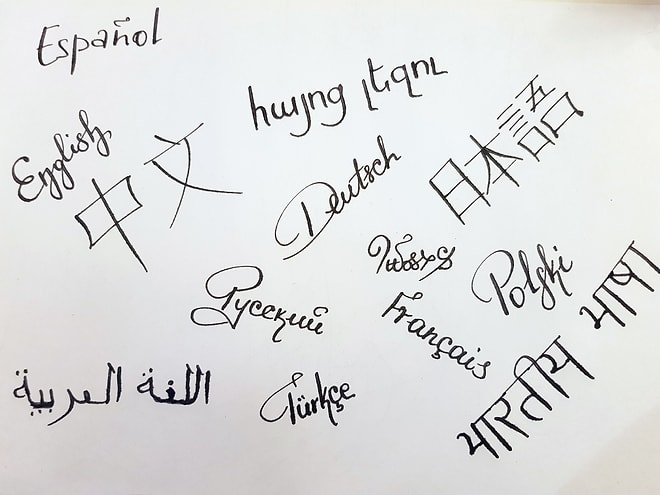 Español
հայոց լեզու
English
中文
Deutsch
日本語
Русский
Polski
Français
भारतीय भाषा
اللغة العربية
Türkçe